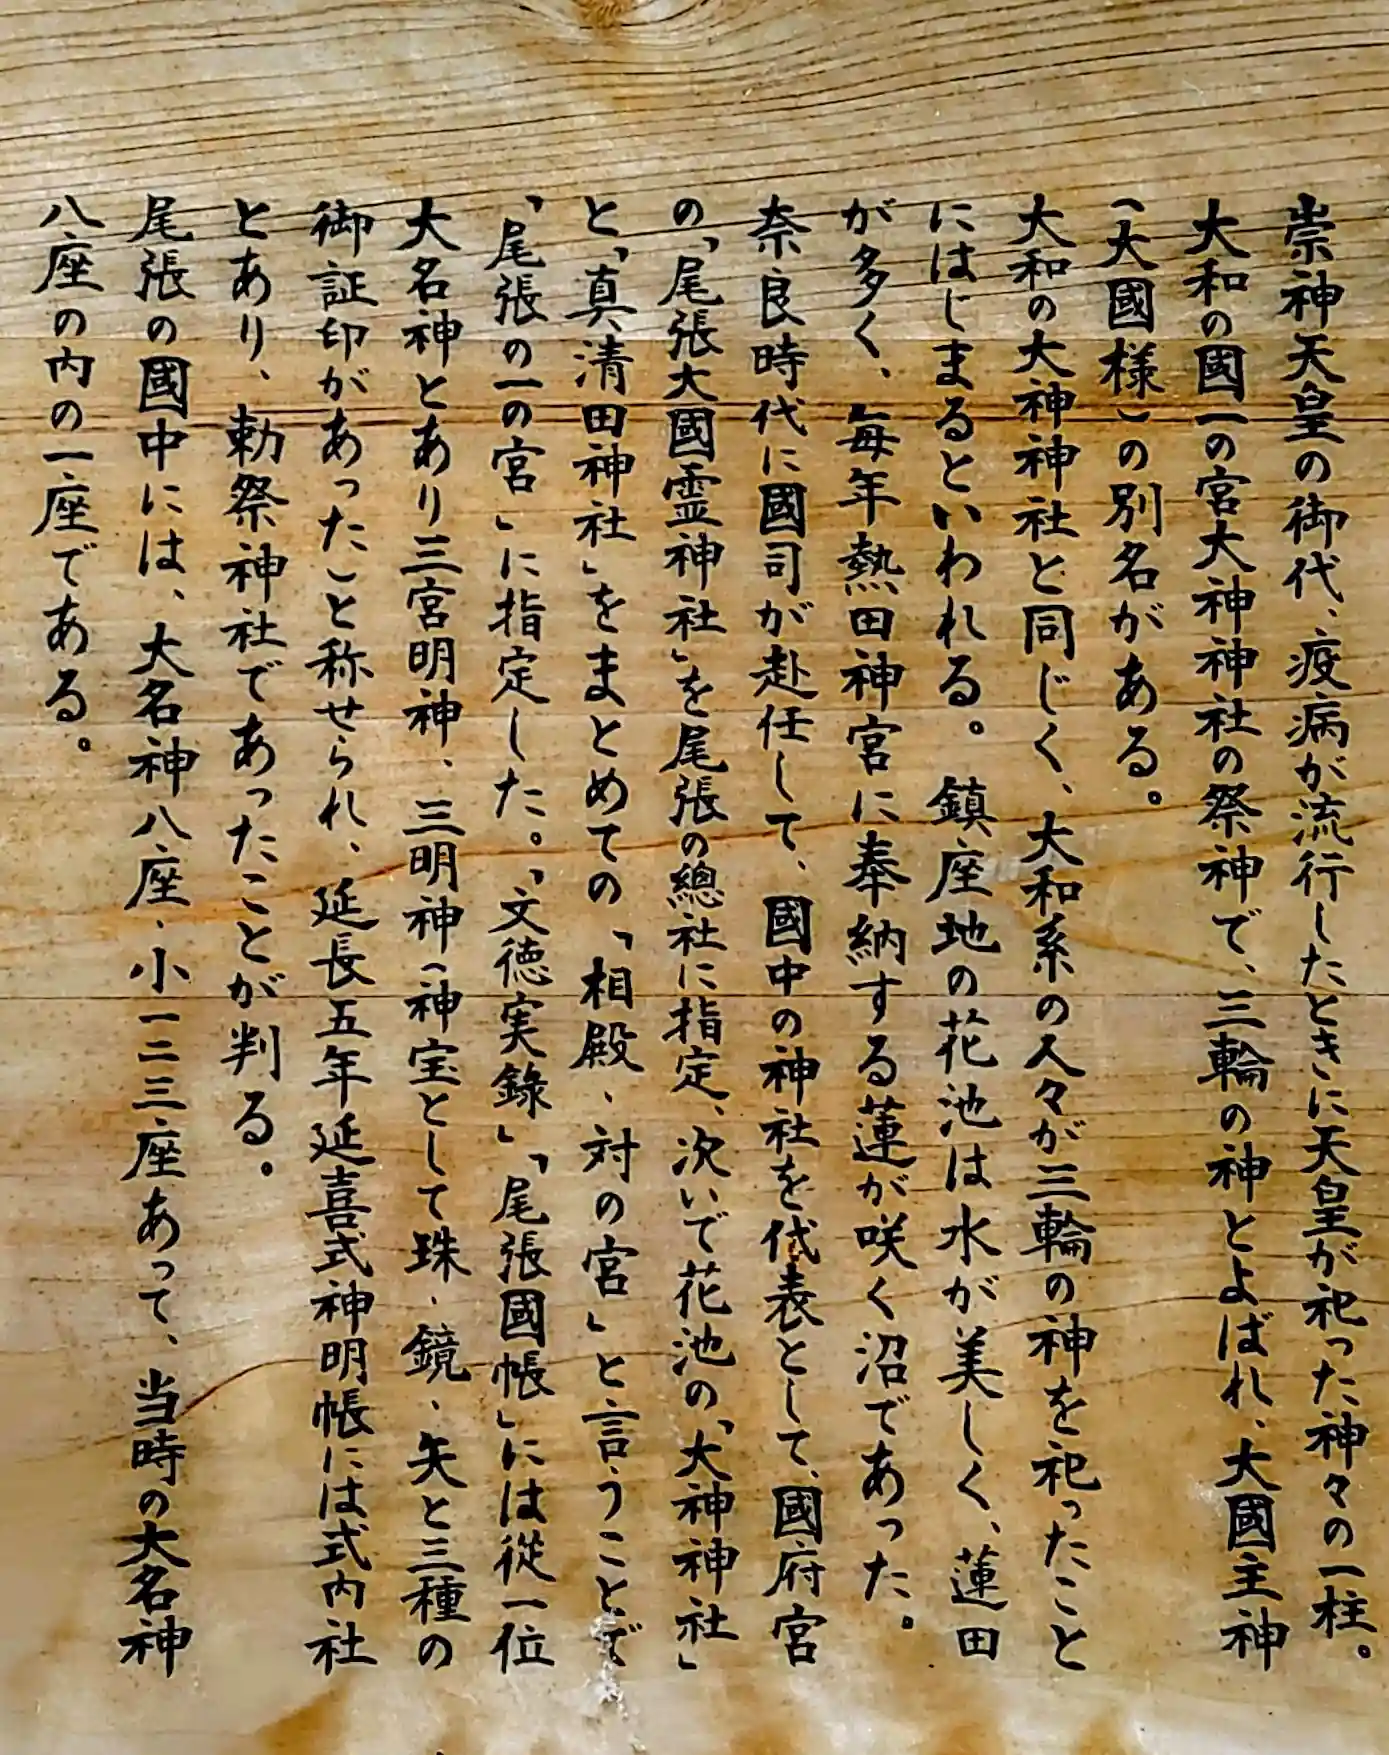 崇神天皇の御代、疫病が流行したときに天皇が祀った神々の一柱。
大和の國一の宮大神神社の祭神で、三輪の神とよばれ、大國主神
(大國様)の別名がある。
大和の大神神社と同じく、大和系の人々が三輪の神を祀ったこと
にはじまるといわれる。鎮座地の花池は水が美しく、蓮田
が多く、毎年熱田神宮に奉納する蓮が咲く沼であった。
奈良時代に國司が赴任して、國中の神社を代表として、國府宮
の「尾張大國霊神社」を尾張の總社に指定、次いで花池の「大神神社」
と、「真清田神社」をまとめての「相殿、対の宮」と言うことで
「尾張の一の宮」に指定した。「文徳実録」「尾張國帳」には従一位
大名神とあり三宮明神、三明神(神宝として珠、鏡、矢と三種の
御証印があった)と称せられ、延長五年延喜式神明帳には式内社
とあり、勅祭神社であったことが判る。
尾張の國中には、大名神八座、小一二三座あって、当時の大名神
八座の内の一座である。